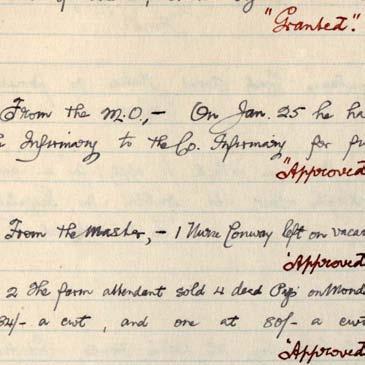 "Granted".
From the M.O,- On Jan. 25 he ha
Infirmary to the Co. Infirmary for
"Approved
From the Master,- 1 Nurse Conway left on vaca
"Approved
2 The farm attendant sold 4 dead Pigs on Mond
84/- a cwt, and one at 80/- a cwt
"Approved